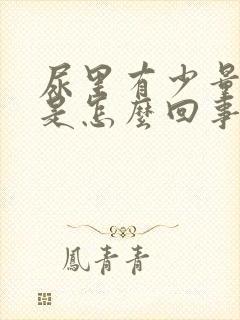 尿里有少量
是怎麼回事
鳳青青